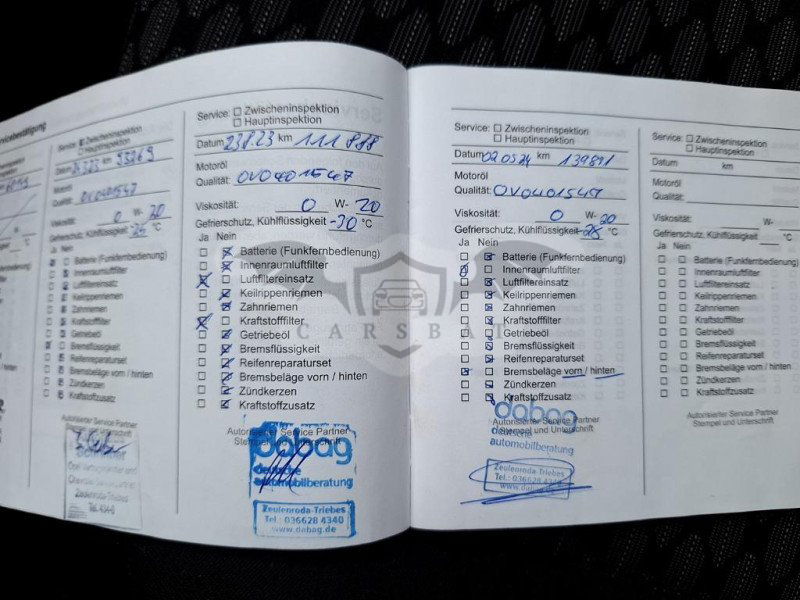 Servicebestätigung
Service: Zwischeninspektion
Hauptinspektion
Motoröl
Qualität: OVO401547
Viskosität: 0 W- 20
Gefrierschutz, Kühlflüssigkeit -25 °C
Ja Nein
Batterie (Funkfernbedienung)
Innenraumluftfilter
Luftfiltereinsatz
Keilrippenriemen
Zahnriemen
Kraftstofffilter
Getriebeöl
Bremsflüssigkeit
Reifenreparaturset
Bremsbeläge vorn / hinten
Zündkerzen
Kraftstoffzusatz
Autorisierter Service Partner
Zeulenroda-Triebes
Service: Zwischeninspektion
Hauptinspektion
Datum 23.1.23 km 111 888
Motoröl
Qualität: OVO401547
Viskosität: 0 W- 20
Gefrierschutz, Kühlflüssigkeit -30 °C
Ja Nein
Batterie (Funkfernbedienung)
Innenraumluftfilter
Luftfiltereinsatz
Keilrippenriemen
Zahnriemen
Kraftstofffilter
Getriebeöl
Bremsflüssigkeit
Reifenreparaturset
Bremsbeläge vorn / hinten
Zündkerzen
Kraftstoffzusatz
Autorisierter Service Partner
Stempel und Unterschrift
dabag
deutsche
automobilberatung
Zeulenroda-Triebes
Tel.: 036628 4340
www.dabag.de
Service: Zwischeninspektion
Hauptinspektion
Datum 02.05.24 km 139891
Motoröl
Qualität: OVO401547
Viskosität: 0 W- 20
Gefrierschutz, Kühlflüssigkeit -25 °C
Ja Nein
Batterie (Funkfernbedienung)
Innenraumluftfilter
Luftfiltereinsatz
Keilrippenriemen
Zahnriemen
Kraftstofffilter
Getriebeöl
Bremsflüssigkeit
Reifenreparaturset
Bremsbeläge vorn / hinten
Zündkerzen
Kraftstoffzusatz
dabag
Autorisierter Service Partner
Stempel und Unterschrift
deutsche
automobilberatung
Zeulenroda-Triebes
Tel.: 036628 4340
www.dabag.de
Service: Zwischeninspektion
Hauptinspektion
Datum km
Motoröl
Qualität:
Viskosität: W-
Gefrierschutz, Kühlflüssigkeit °C
Ja Nein
Batterie (Funkfernbedienung)
Innenraumluftfilter
Luftfiltereinsatz
Keilrippenriemen
Zahnriemen
Kraftstofffilter
Getriebeöl
Bremsflüssigkeit
Reifenreparaturset
Bremsbeläge vorn / hinten
Zündkerzen
Kraftstoffzusatz
Autorisierter Service Partner
Stempel und Unterschrift
CARSBAT